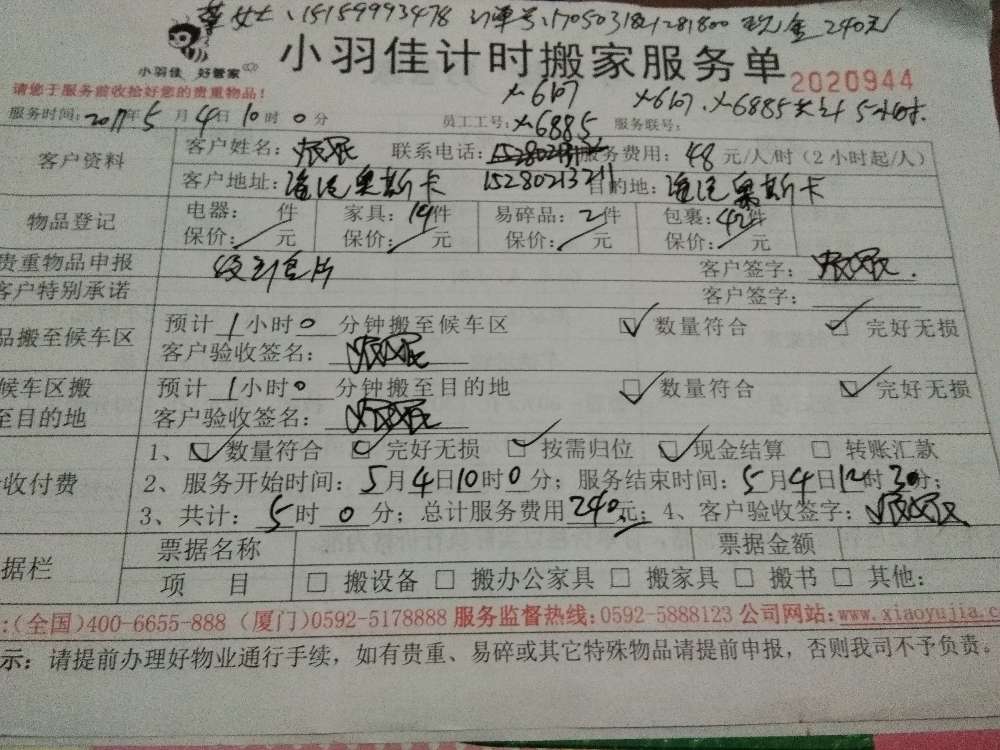 女士、15159993478 订单号:170503 现金 240元
小羽佳 好管家
小羽佳计时搬家服务单 2020944
请您于服务前收拾好您的贵重物品!
X-6107 X-6107、X-6885共计 5小时.
服务时间:2017年5月4日10时0分 员工工号:X-6885 服务联号:
客户资料 客户姓名: 联系电话: 服务费用:48元/人/时(2小时起/人)
客户地址: 奥斯卡 15280213211 目的地: 奥斯卡
物品登记 电器: 件 家具:14件 易碎品:2件 包裹:42件
保价:/元 保价:/元 保价:/元 保价:/元
贵重物品申报 客户签字:
客户特别承诺 客户签字:
品搬至候车区 预计1小时0分钟搬至候车区 ☑数量符合 ☑完好无损
客户验收签名:
候车区搬 预计1小时0分钟搬至目的地 ☑数量符合 ☑完好无损
至目的地 客户验收签名:
1、☑数量符合 ☑完好无损 ☑按需归位 ☑现金结算 □转账汇款
收付费 2、服务开始时间:5月4日10时0分;服务结束时间:5月4日12时30分;
3、共计:5时0分;总计服务费用240元;4、客户验收签字:
票据名称 票据金额
据栏 项 目 □搬设备 □搬办公家具 □搬家具 □搬书 □其他:
:(全国)400-6655-888 (厦门)0592-5178888 服务监督热线:0592-5888123 公司网站:www.xiaoyujia.c
示:请提前办理好物业通行手续,如有贵重、易碎或其它特殊物品请提前申报,否则我司不予负责。